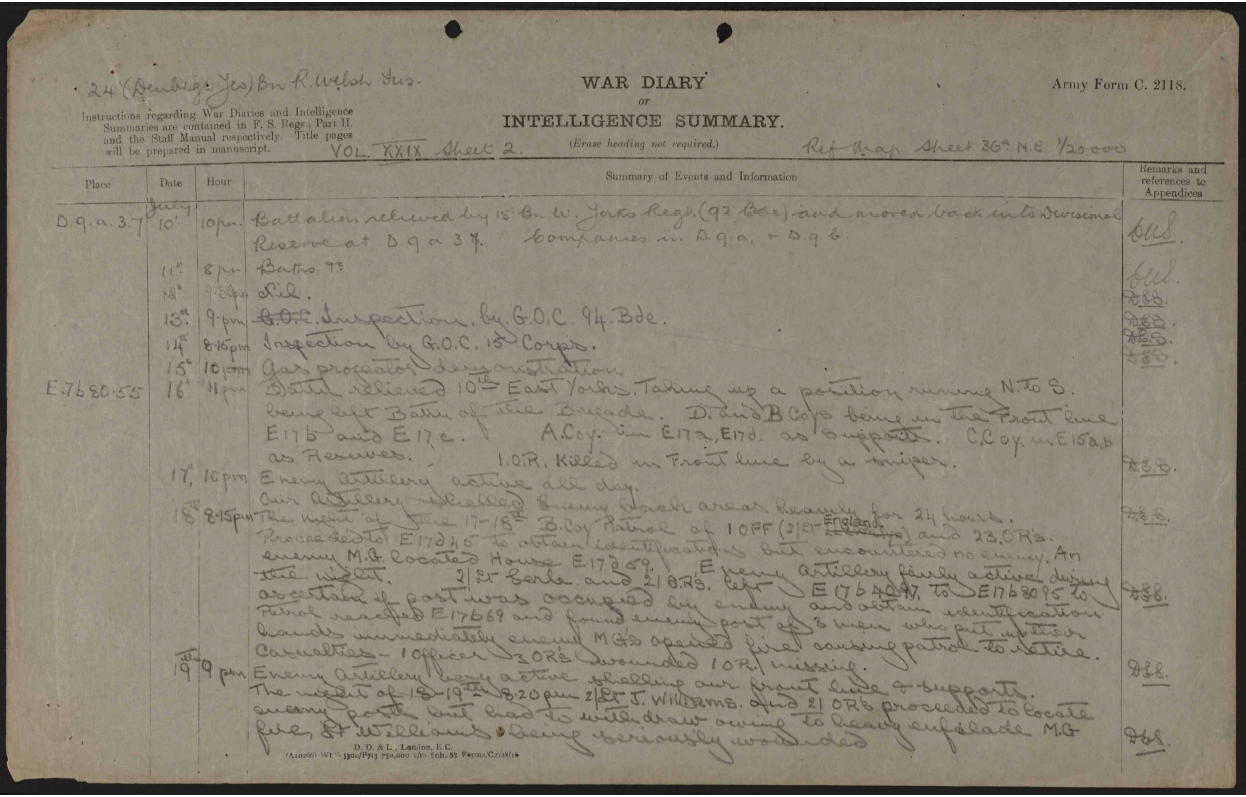 24 (Denbigh Yeo) Bn R. Welsh Fus.
WAR DIARY
or
INTELLIGENCE SUMMARY.
(Erase heading not required.)
Army Form C. 2118.
Instructions regarding War Diaries and Intelligence
Summaries are contained in F. S. Regs., Part II.
and the Staff Manual respectively. Title pages
will be prepared in manuscript.
VOL. XXIX Sheet 2.
Ref Map Sheet 36A N.E 1/20000
Place Date Hour Summary of Events and Information Remarks and references to Appendices
July
D.9.a.3.7 10th 10pm. Battalion relieved by 15 Bn W. Yorks Regt. (92 Bde) and moved back into Divisional
Reserve at D 9 a 3 7. Companies in D.9.a. + D.9.b.
11th 8pm Baths
12th 9.30pm Nil.
13th 9.pm G.O.C. Inspection. by G.O.C. 94. Bde.
14th 8.15pm Inspection by G.O.C. 15 Corps.
15th 10pm Gas projector demonstration
E.7b80.55 16th 11pm Battn relieved 10th East Yorks. Taking up a position running N. to S.
being left Battn of the Brigade. D. and B Coys being in the Front line
E17b and E17c. A.Coy. in E17a, E17d. as Supports. C.Coy. in E15a,b
as Reserves. 1.O.R. Killed in Front line by a sniper. DSS.
17th, 10pm Enemy Artillery active all day.
Our Artillery shelled Enemy back areas heavily for 24 hours.
18th 8.15pm The night of 17-18th B.Coy Patrol of 1 OFF (2/Lt England.) and 23,O.R's.
Proceeded to E17d45 to obtain identifications but encountered no enemy. An
enemy M.G located House E17d59. Enemy Artillery fairly active during
the night. 2/Lt and 21 O.R's. left E17b4097. to E17b8095 to
ascertain if post was occupied by enemy and obtain identification
Patrol reached E17b69 and found enemy post of 3 men who put up their
hands immediately enemy M.G's opened fire causing patrol to retire.
Casualties - 1 Officer 3 OR's wounded 1 OR. missing.
19th 9pm Enemy Artillery very active shelling our front line & supports.
The night of 18-19th 8.20pm 2/Lt J. Williams. and 21 O.R's proceeded to locate
enemy posts but had to withdraw owing to heavy enfilade M.G
fire, Lt Williams being seriously wounded
D. D. & L., London, E.C.